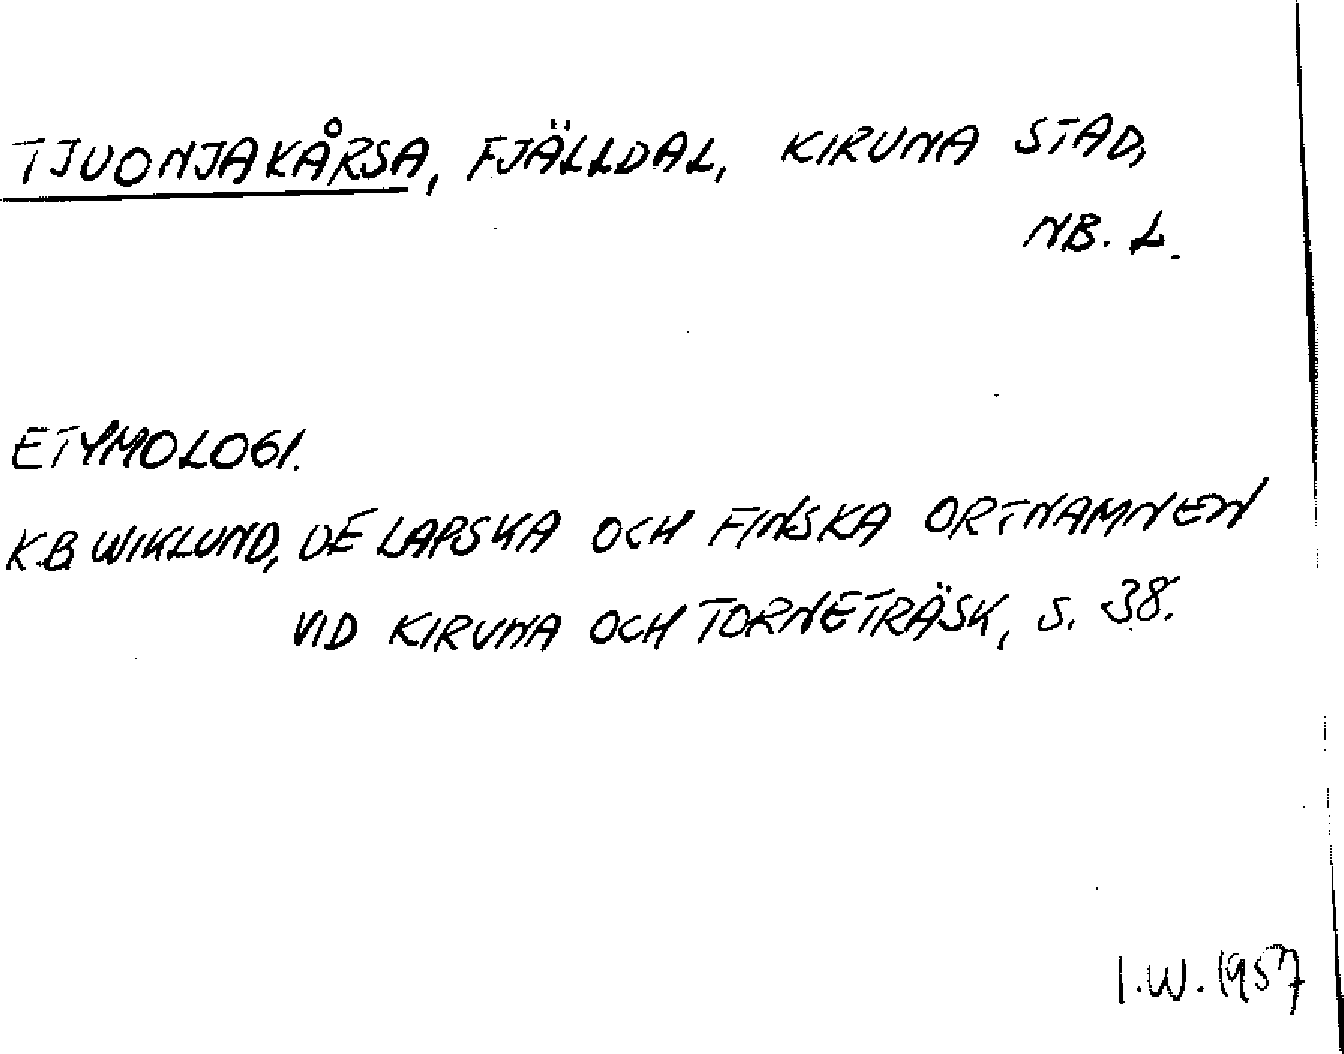 TJUONJAKÅRSA, FJÄLLDAL, KIRUNA STAD,
NB. L.
ETYMOLOGI.
K.B. WIKLUND, DE LAPSKA OCH FINSKA ORTNAMNEN
VID KIRUNA OCH TORNETRÄSK, S. 38.
I.W. 1957